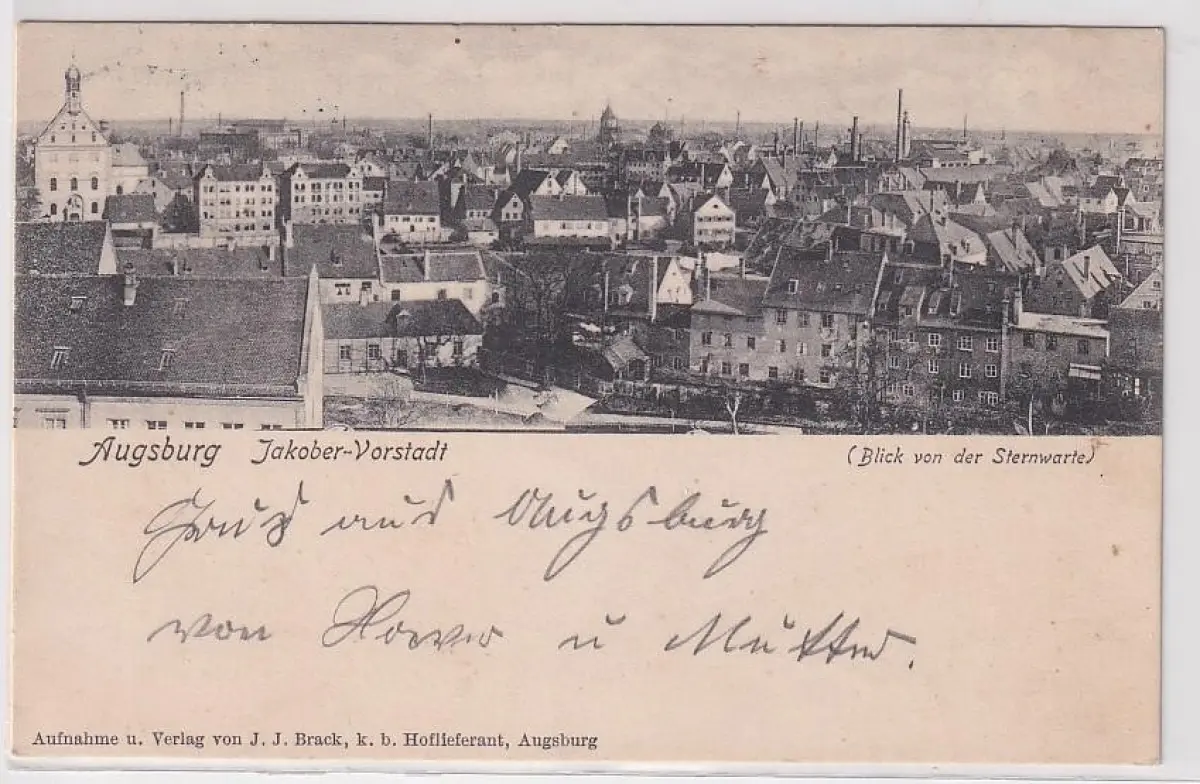 Augsburg Jakober-Vorstadt
(Blick von der Sternwarte)
Gruß aus Augsburg
von u Mutter.
Aufnahme u. Verlag von J. J. Brack, k. b. Hoflieferant, Augsburg